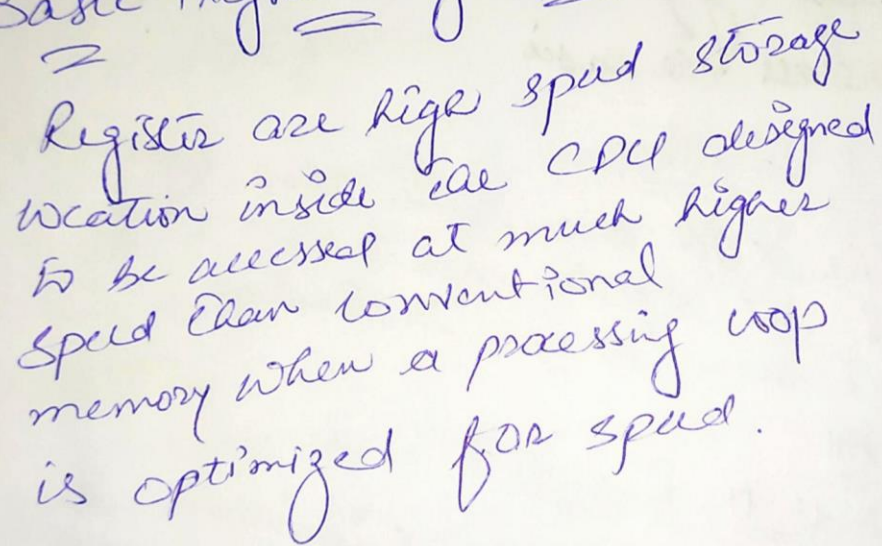 Basic
Register are high speed storage
location inside the CPU designed
to be accessed at much higher
speed than conventional
memory when a processing loop
is optimized for speed.